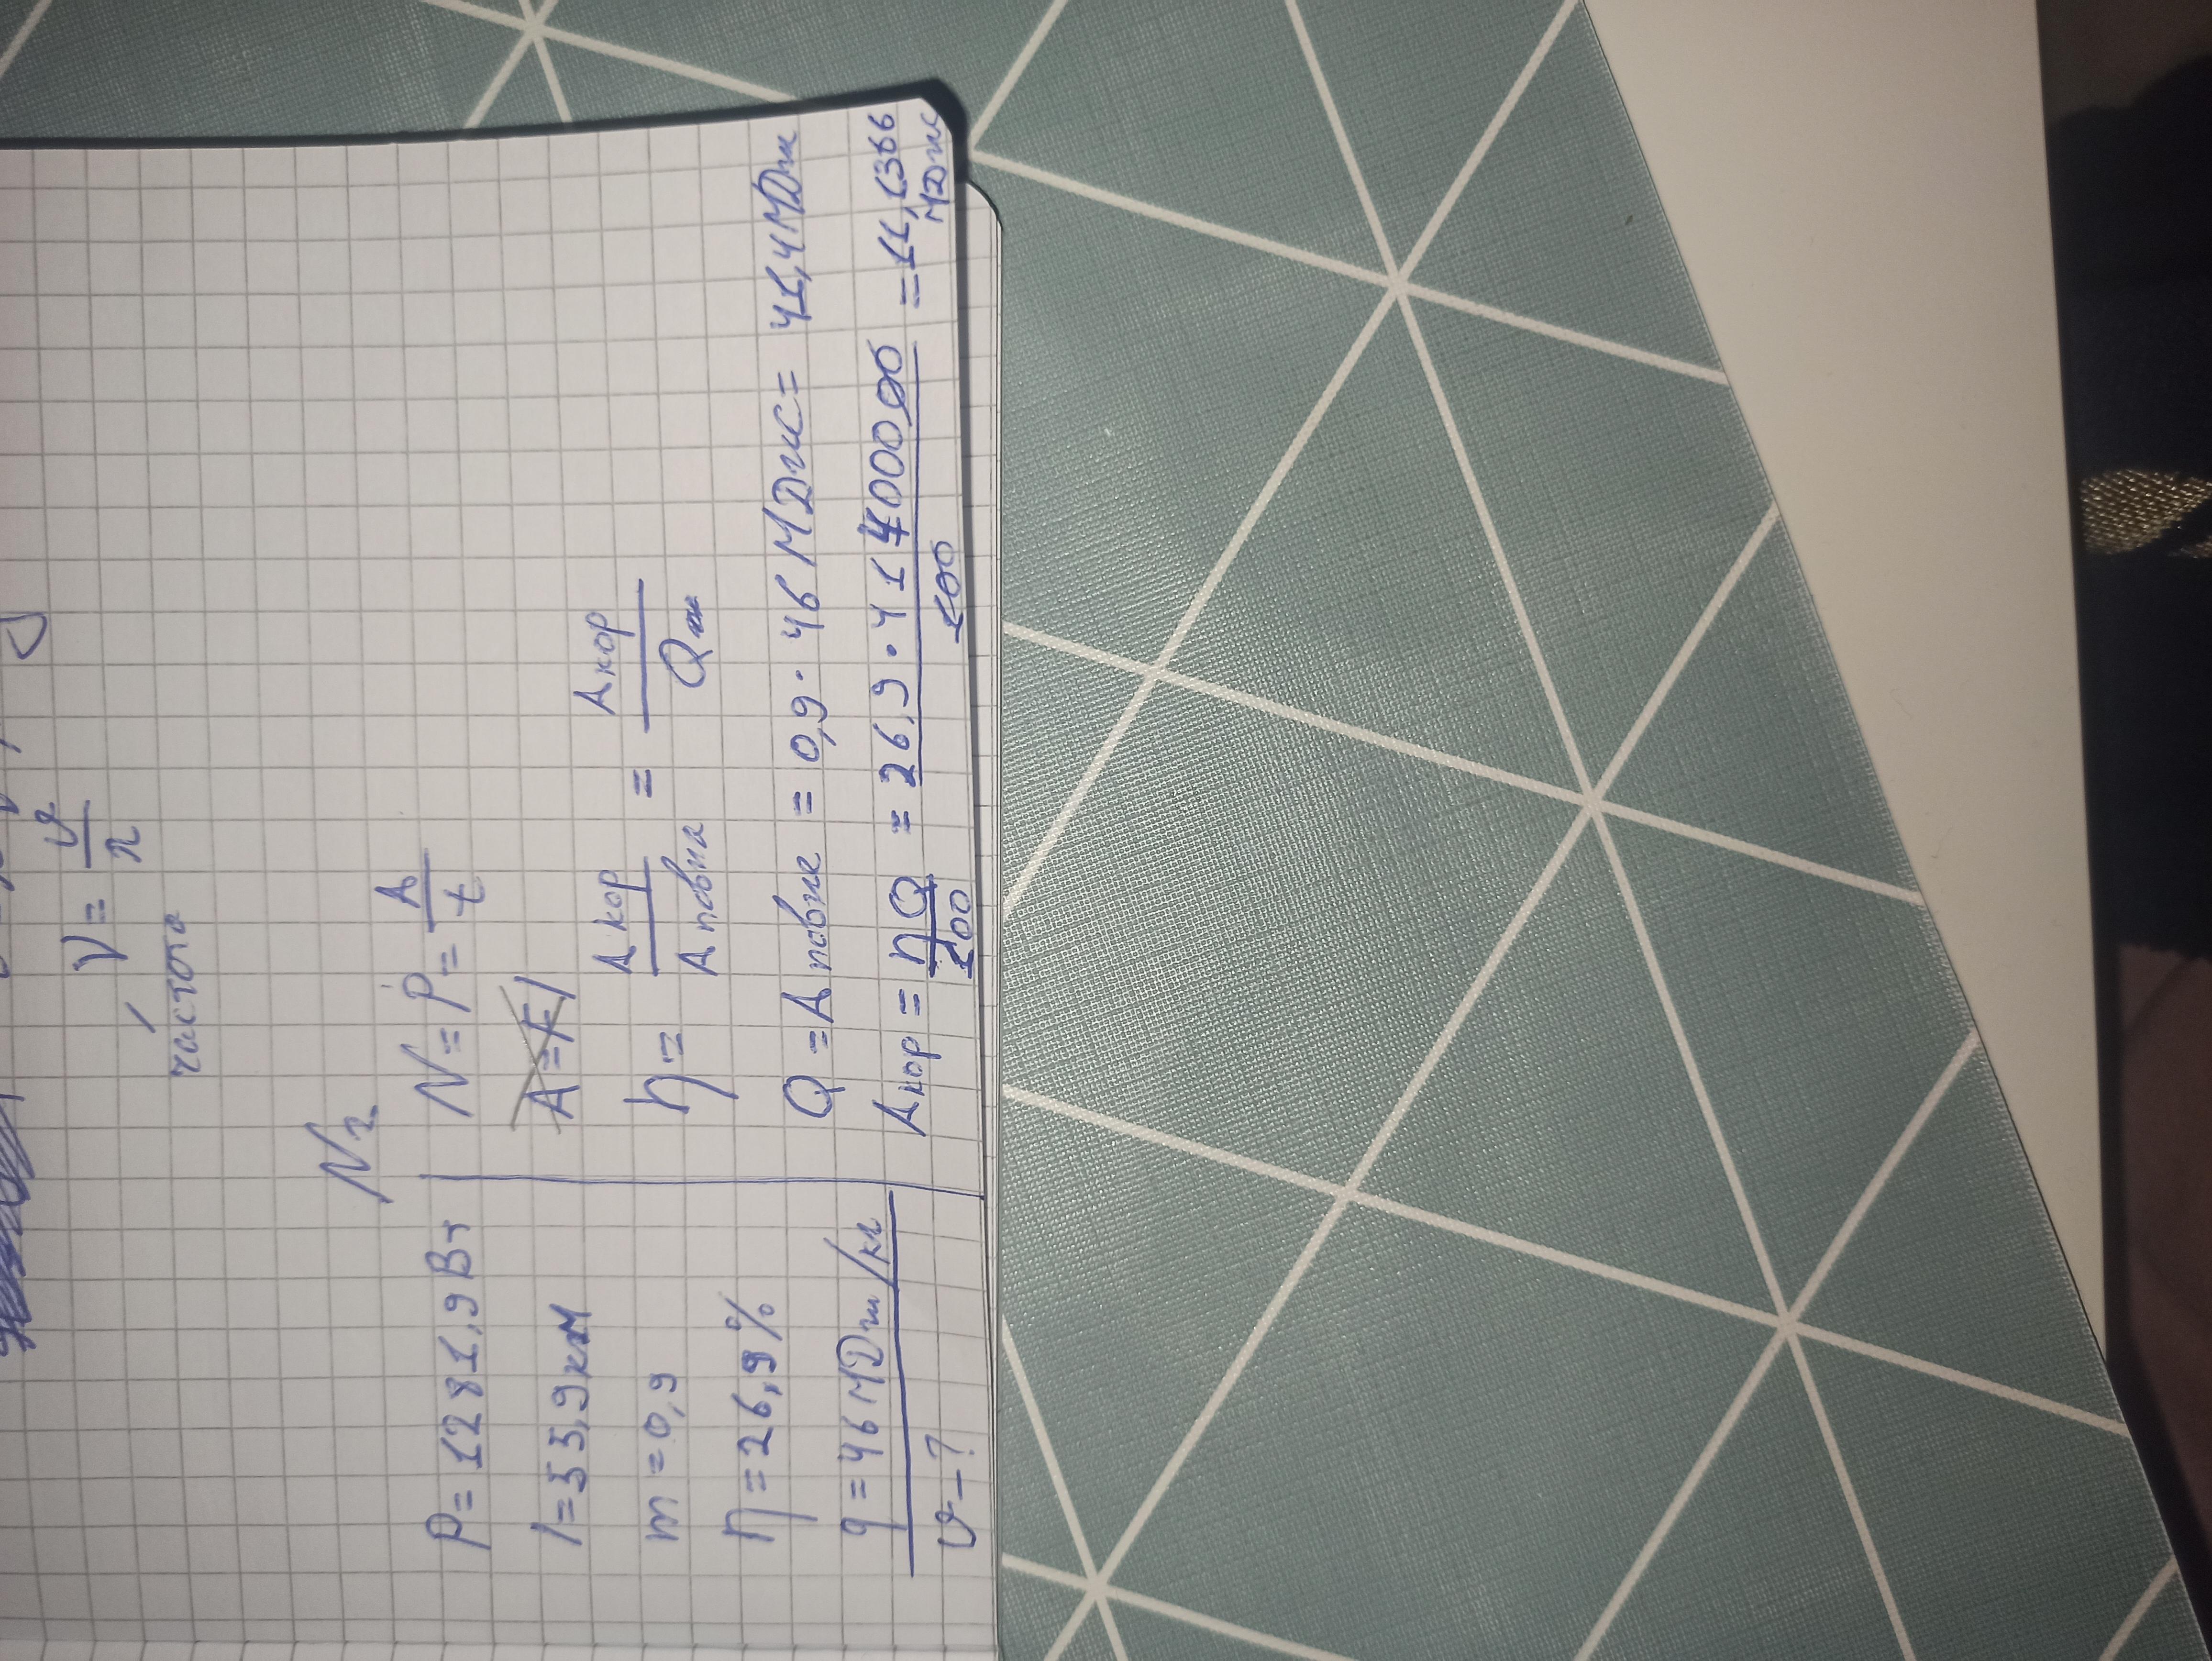 ν = υ/λ
частота
N2
P = 1281,9 Вт
l = 55,9 км
m = 0,9
η = 26,9 %
q = 46 МДж/кг
υ - ?
N = P = A/t
A = Fl
η = Aкор/Aповна = Aкор/Qж
Q = Aповне = 0,9 · 46 МДж = 41,4 МДж
Aкор = ηQ/100 = 26,9 · 41400000/100 = 11,1366 МДж